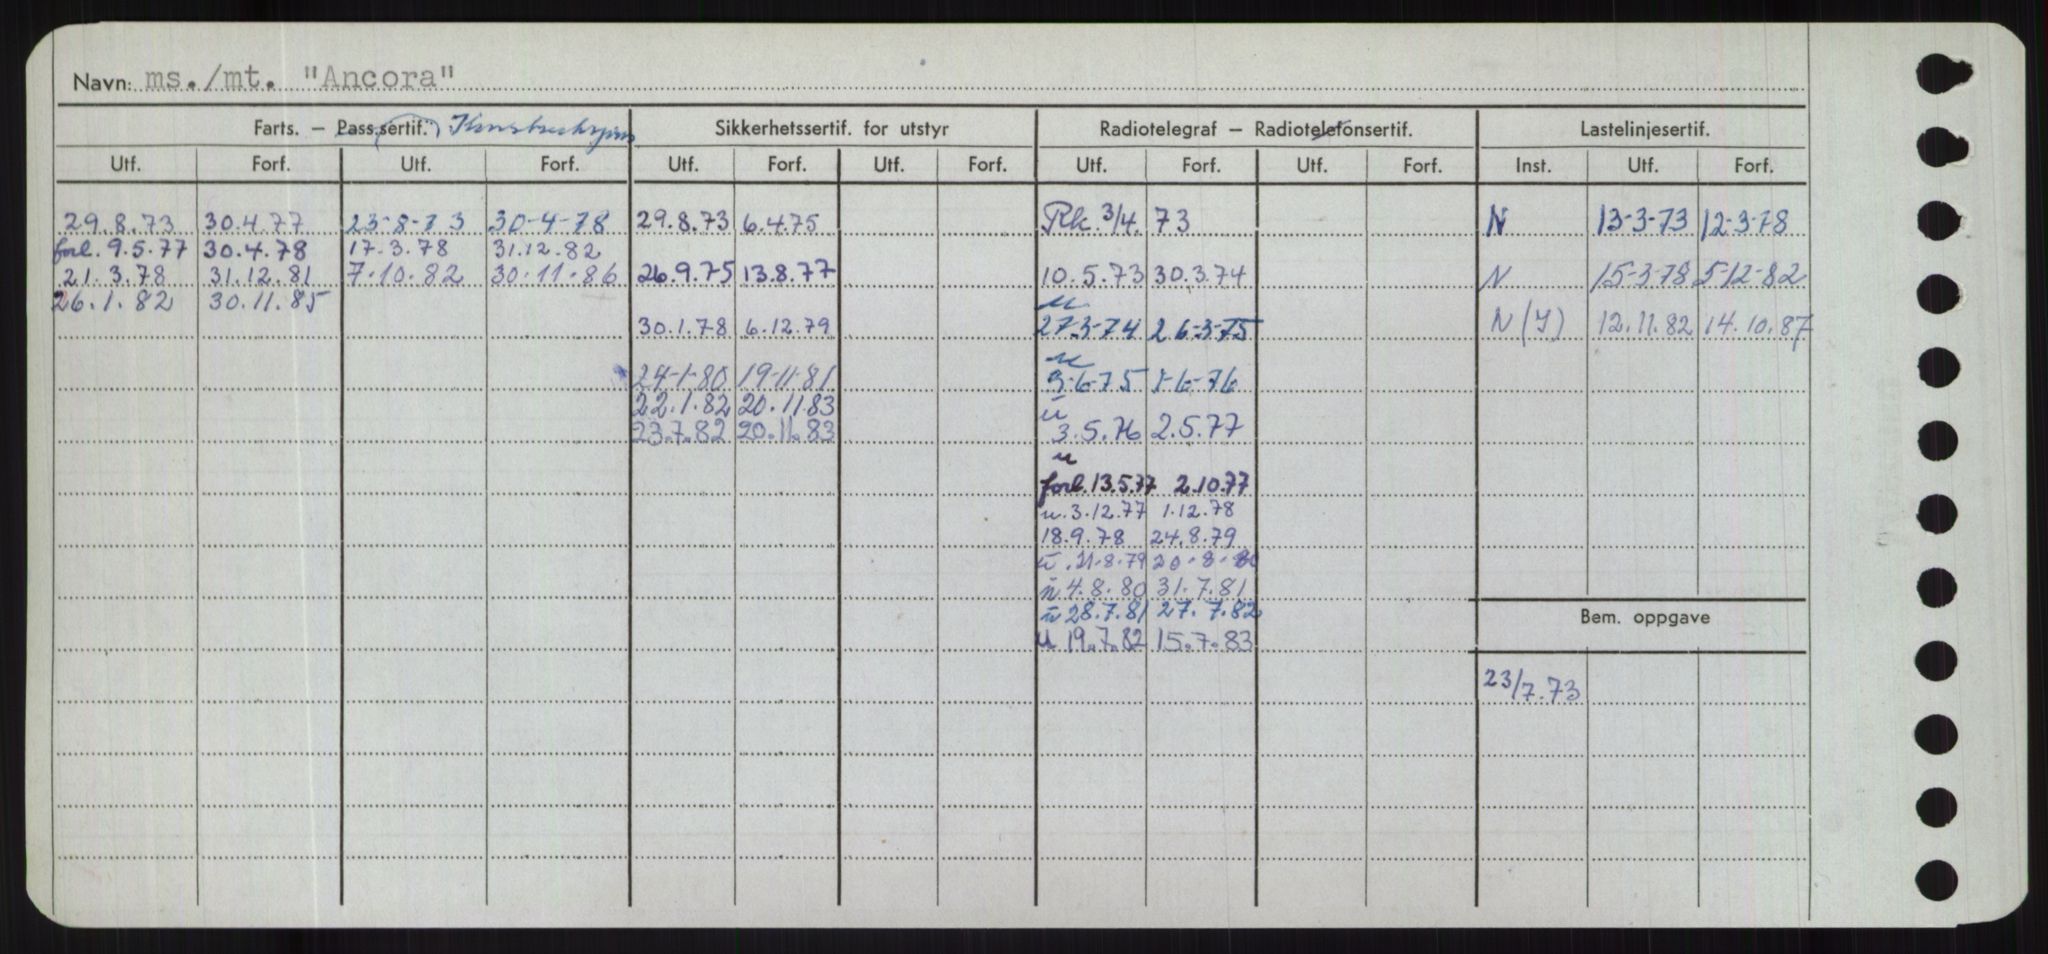 Navn: ms./mt. "Ancora"
Farts. – Pass.sertif. Sikkerhetssertif. for utstyr Radiotelegraf – Radiotelefonsertif. Lastelinjesertif.
Utf. Forf. Utf. Forf. Utf. Forf. Utf. Forf. Utf. Forf. Utf. Forf. Inst. Utf. Forf.
29.8.73 30.4.77 23-8-73 30-4-78 29.8.73 6.4.75 Rk. 3/4. 73 N 13-3-73 12-3-78
forl. 9.5.77 30.4.78 17.3.78 31.12.82
21.3.78 31.12.81 7.10.82 30.11.86 26.9.75 13.8.77 10.5.73 30.3.74 N 15-3-78 5-12-82
26.1.82 30.11.85 u
30.1.78 6.12.79 27-3-74 26-3-75 N (Y) 12.11.82 14.10.87
u
24-1-80 19-11-81 3-6-75 1-6-76
22.1.82 20.11.83 u
23.7.82 20.11.83 3.5.76 2.5.77
u
forl. 13.5.77 2.10.77
u. 3.12.77 1.12.78
18.9.78 24.8.79
u. 21.8.79 20-8-80
u 4.8.80 31.7.81
u 28.7.81 27.7.82
Bem. oppgave
u 19.7.82 15.7.83
23/7.73